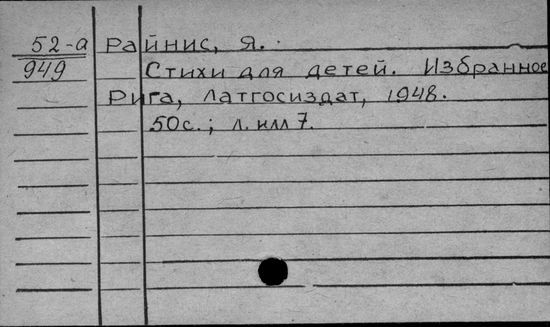 52-а Райнис, Я.
949 Стихи для детей. Избранное
Рига, Латгосиздат, 1948.
50с.; л. илл 7.